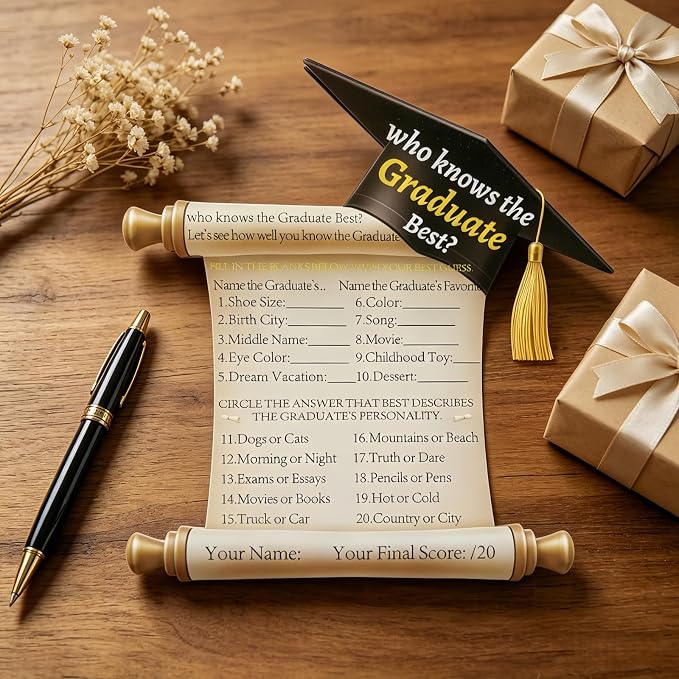 who knows the
Graduate
Best?
who knows the Graduate Best?
Let's see how well you know the Graduate
FILL IN THE BLANKS BELOW YOUR BEST GUESS.
Name the Graduate's.. Name the Graduate's Favorite
1.Shoe Size:________ 6.Color:________
2.Birth City:________ 7.Song:________
3.Middle Name:______ 8.Movie:________
4.Eye Color:________ 9.Childhood Toy:____
5.Dream Vacation:____ 10.Dessert:________
CIRCLE THE ANSWER THAT BEST DESCRIBES
THE GRADUATE'S PERSONALITY.
11.Dogs or Cats 16.Mountains or Beach
12.Morning or Night 17.Truth or Dare
13.Exams or Essays 18.Pencils or Pens
14.Movies or Books 19.Hot or Cold
15.Truck or Car 20.Country or City
Your Name: Your Final Score: /20